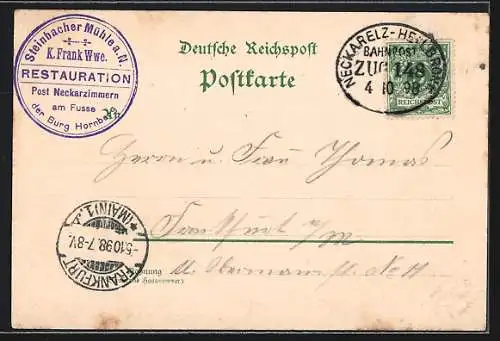 Steinbacher Mühle a.N.
K. Frank Wwe.
RESTAURATION
Post Neckarzimmern
am Fusse
der Burg Hornberg
Deutsche Reichspost
Postkarte
NECKARELZ-HEILBRONN
BAHNPOST
ZUG 148
4 10 98
REICHSPOST
Herrn u. Frau Thomas
Frankfurt a/M
-5.10.98.7-8V.
FRANKFURT (MAIN) 1.
Wohnung
No 11